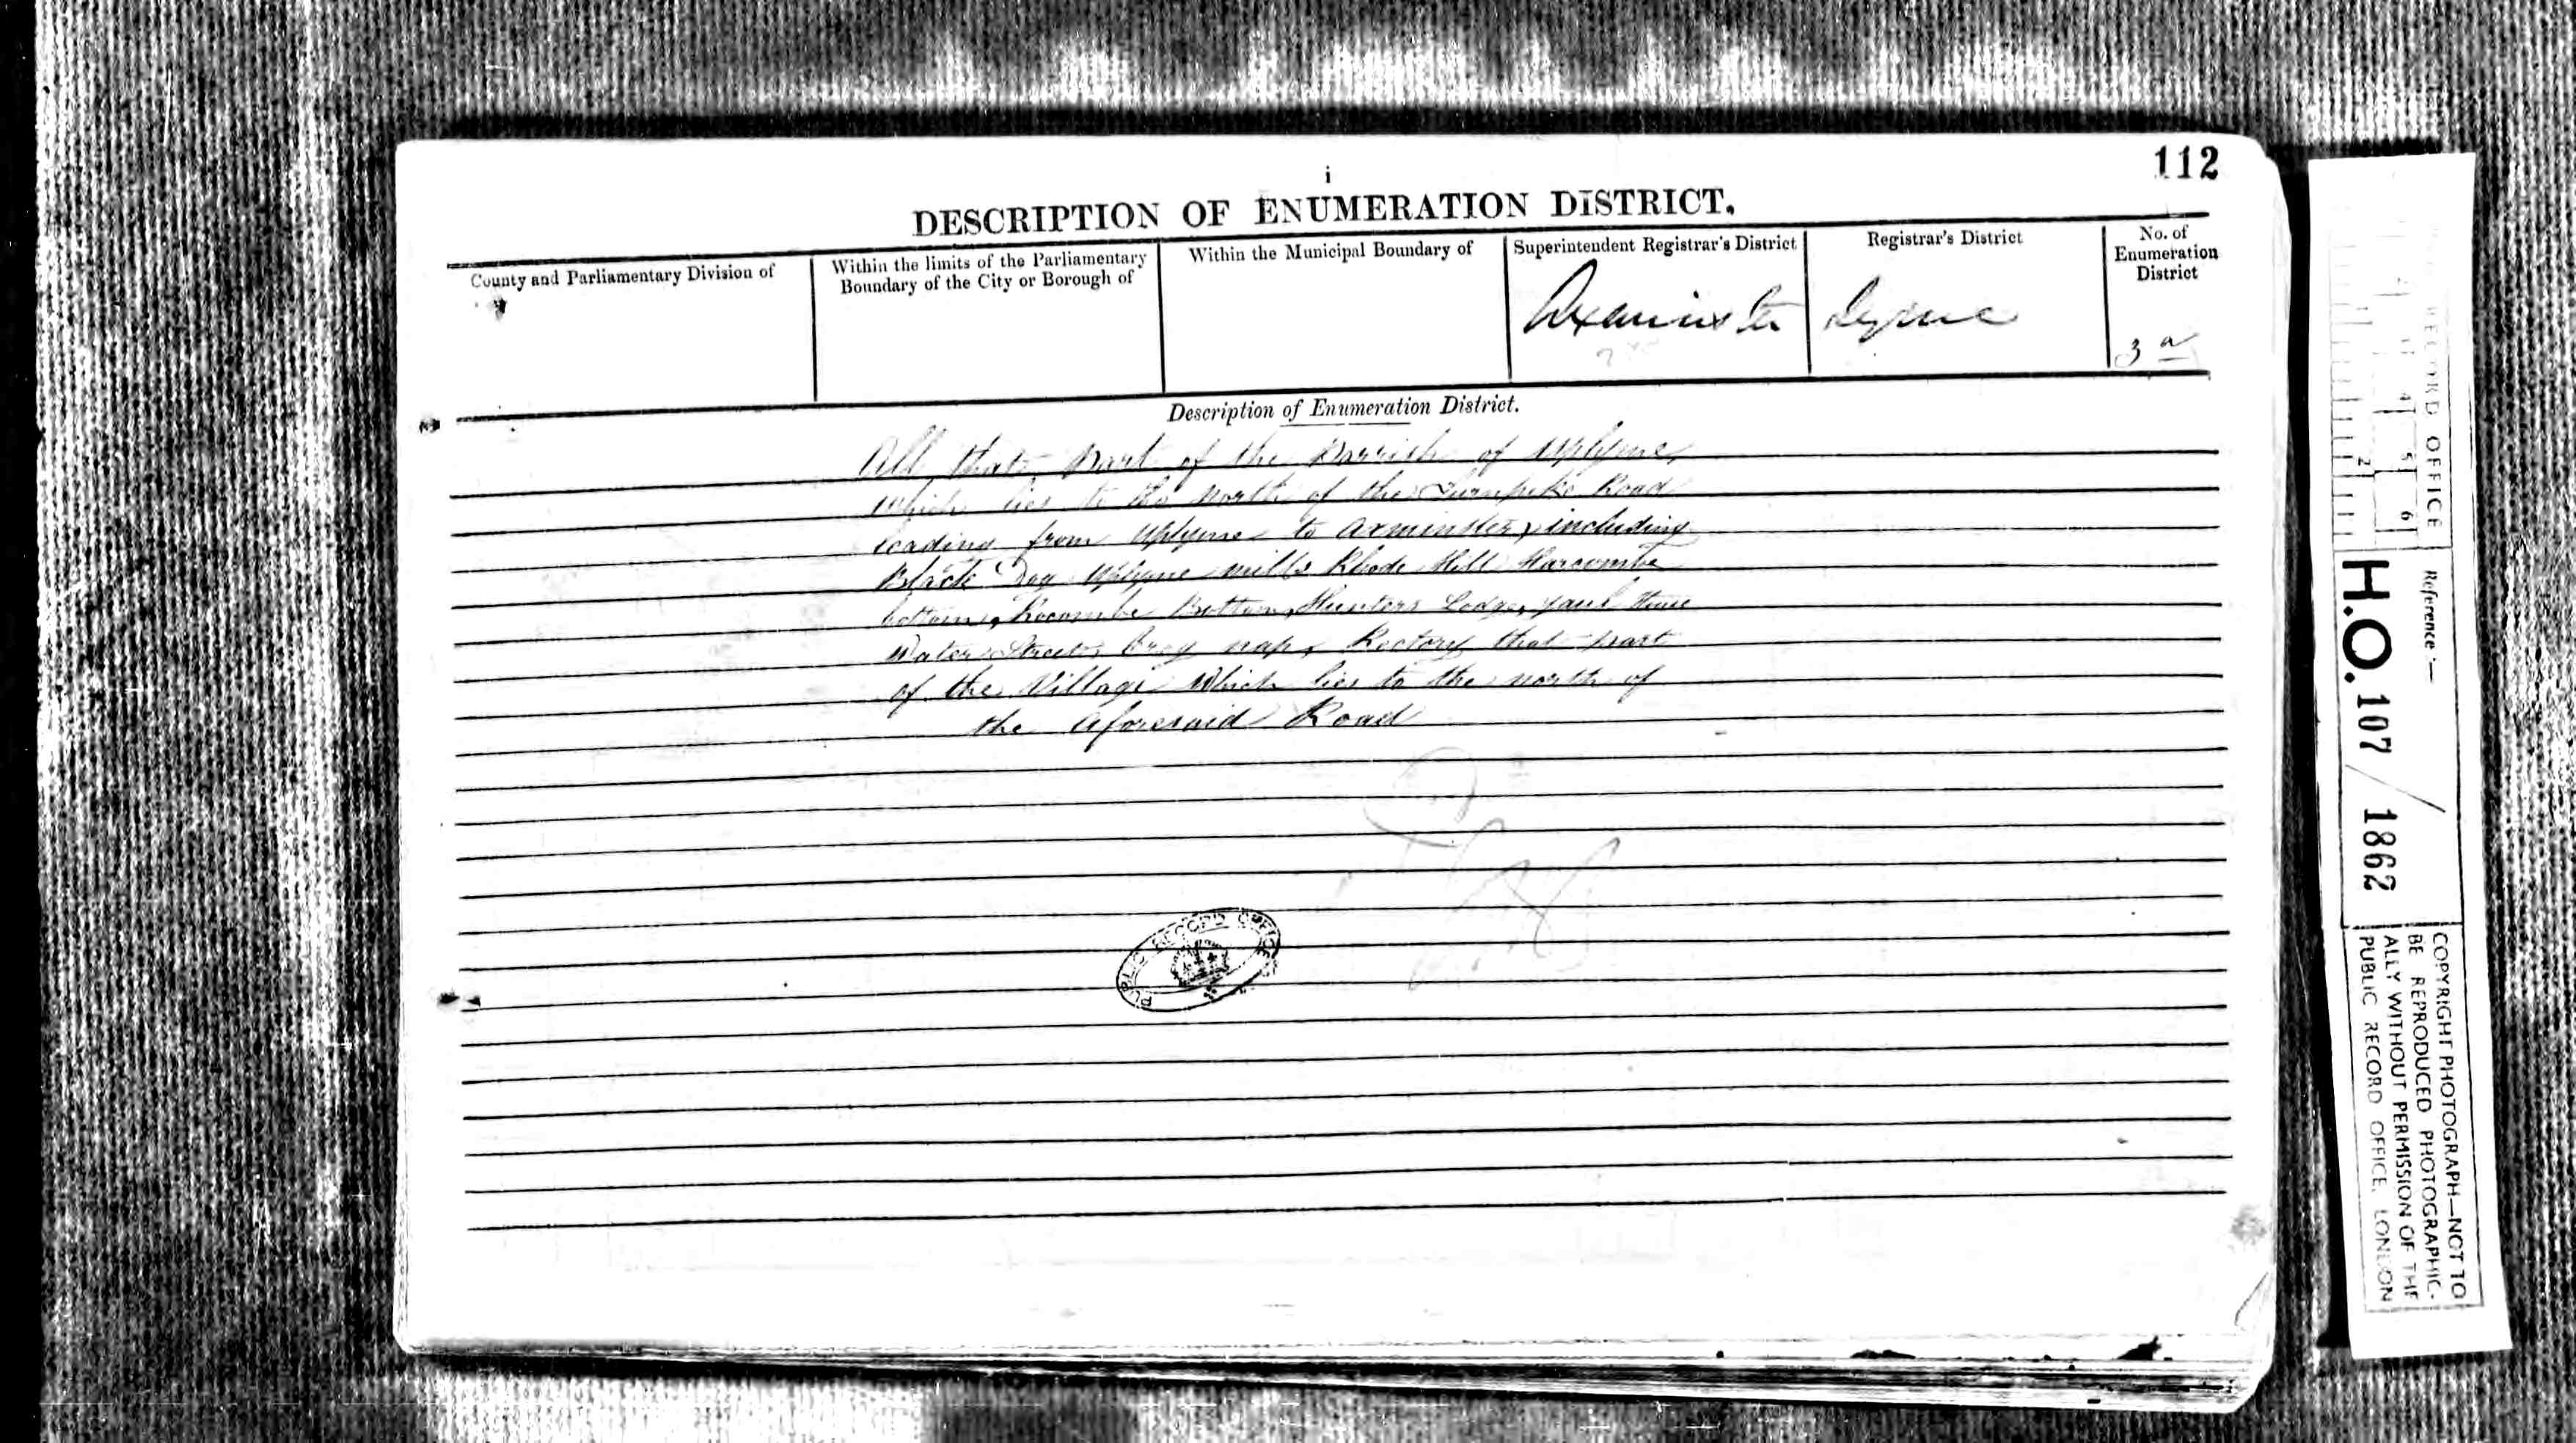 112
i
DESCRIPTION OF ENUMERATION DISTRICT.
County and Parliamentary Division of
Within the limits of the Parliamentary Boundary of the City or Borough of
Within the Municipal Boundary of
Superintendent Registrar's District
Registrar's District
No. of Enumeration District
Axminster
Lyme
3 a
Description of Enumeration District.
All that Part of the Parrish of Uplyme
Which lies to the North of the Turnpike Road
leading from Uplyme to Axminster, including
Black Dog Uplyme mills Rhode Hill Harcombe
bottom, Rocombe Bottom, Hunters Lodge, House
Water Street, nap, Rectory that part
of the Village Which lies to the north of
the Aforesaid Road
PUBLIC RECORD OFFICE
RECORD OFFICE
2
4
5
6
Reference :—
H.O. 107 / 1862
COPYRIGHT PHOTOGRAPH—NOT TO
BE REPRODUCED PHOTOGRAPHIC-
ALLY WITHOUT PERMISSION OF THE
PUBLIC RECORD OFFICE, LONDON